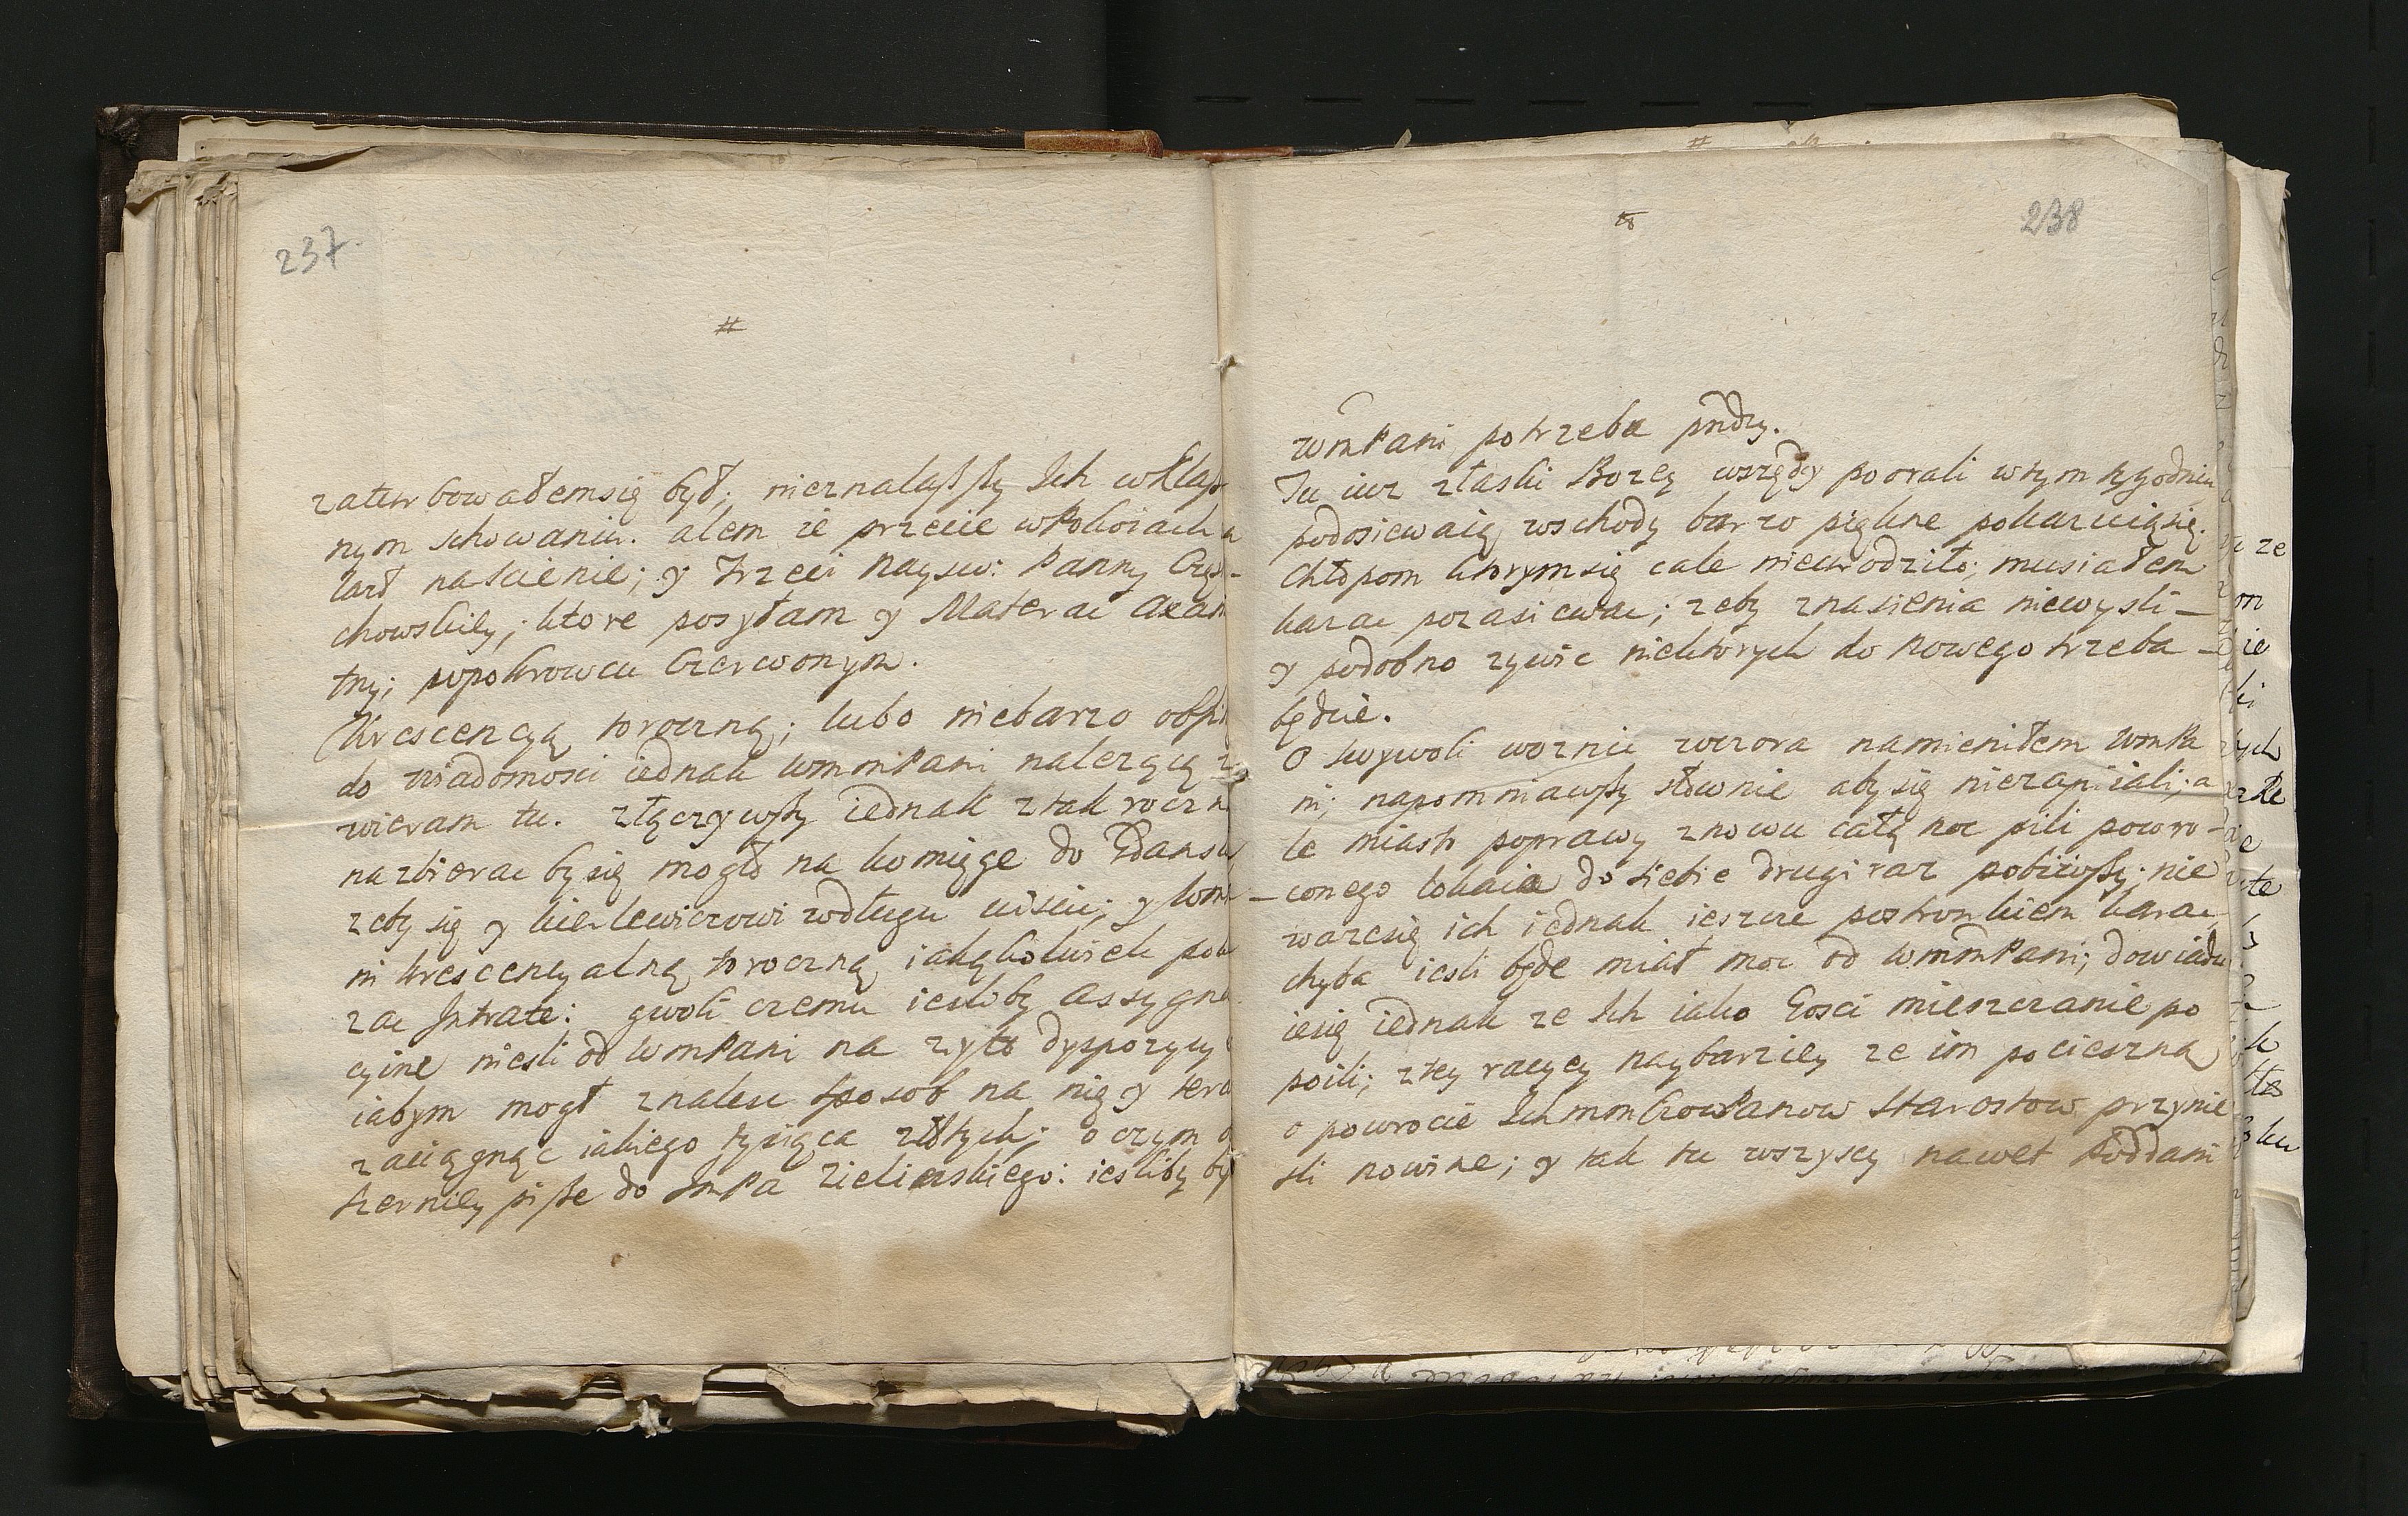 237.
#
zaturbowałemsię był; nieznalaszszy Ich wKlap
nym schowaniu. alem ie przecie wPokoiach
lazł naScienie; y Trzeci Naysw: Panny Częs-
chowskiey; ktore posyłam y Materac Axami
tny; wpokrowcu Czerwonym.
Krescencyą toroczną; lubo niebarzo obfi
do wiadomosci iednak WmmPani nalezącą
wieram tu. złączywszy iednak ztak roczn
nazbierac bysię mogło na komięgę do Gdanska
zeby się y kierlewiczowi zdługu uiscic; y
ni krescencyalną toroczną iakązkolwiek poka
zac Intratę: gwoli czemu iesliby Assygna
cyine niesli od WmPani na zyto dyspozycy
iabym mogł znalesc sposob na nię y tera
zaciągnąc iakiego tysiąca złłtych; o czym
szerniey pisze do ImPa Zielinskiego: iesliby by
238
WmPani potrzeba pńdzy.
Tu iuz złaski Bozey wszędy poorali wtym tygodniu
podosiewaią, wschody barzo piękne pokazuiąsię.
Chłopom ktorymsię cale nieurodziło; musiałem
kazac pozasiewac; zeby znasienia niewyszli-
y podobno zywic niektorych do Nowego trzeba-
będzie.
O swywoli woznic wczora namieniłem WmPa
ni; napomniawszy słownie aby się niezapiiali; a
te miasto poprawy znowu całą noc pili powro-
-conego lokaia do siebie drugi raz pobiwszy; nie
wazesię ich iednak ieszcze postronkiem karac,
chyba iesli będe miał moc od WmmPani; dowiadu
iesię iednak ze Ich iako Gosci mieszczanie po
poili; ztey racycy naybarziey ze im pocieszną
o powrocie IchmmCowPanow Starostow przynie
sli nowine; y tak tu wszyscy nawet Poddani